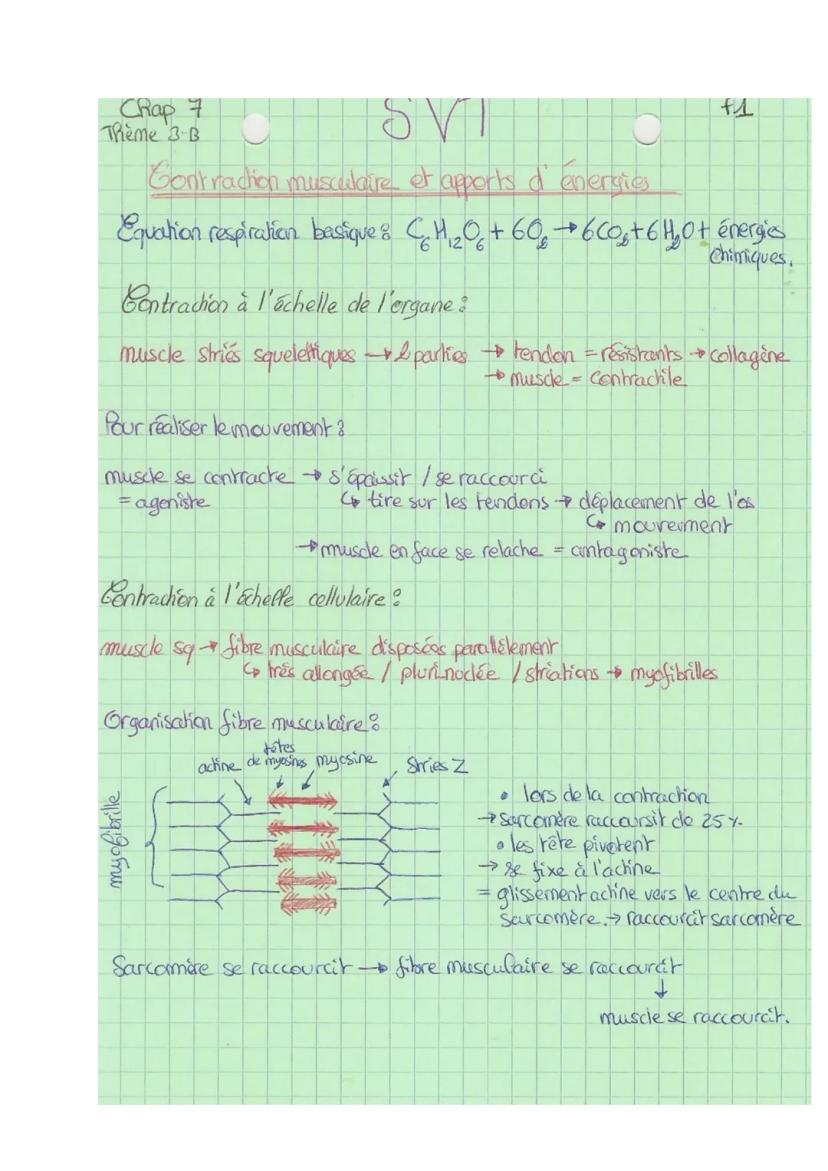 Chap 7
Thème 3-B
SVT
f1
Contraction musculaire et apports d'énergies
Equation respiration basique : C6H12O6 + 6O2 → 6CO2 + 6H2O + énergies
chimiques.
Contraction à l'échelle de l'organe :
muscle striés squelettiques → 2 parties → tendon = résistants → collagène
→ muscle = contractile
Pour réaliser le mouvement :
muscle se contracte → s'épaissit / se raccourci
= agoniste ↳ tire sur les tendons → déplacement de l'os
↳ mouvement
→ muscle en face se relache = antagoniste
Contraction à l'échelle cellulaire :
muscle sq → fibre musculaire disposées parallèlement
↳ très allongée / plurinuclée / striations → myofibrilles
Organisation fibre musculaire :
actine
têtes
de myosines
myosine
Stries Z
myofibrille
• lors de la contraction
→ sarcomère raccoursit de 25 %
• les tête pivotent
→ se fixe à l'actine
= glissement actine vers le centre du
sarcomère. → raccourcit sarcomère
Sarcomère se raccourcit → fibre musculaire se raccourcit
↓
muscle se raccourcit.